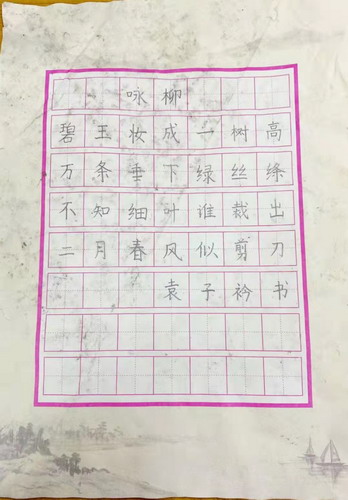 咏柳
碧玉妆成一树高
万条垂下绿丝绦
不知细叶谁裁出
二月春风似剪刀
袁子衿书